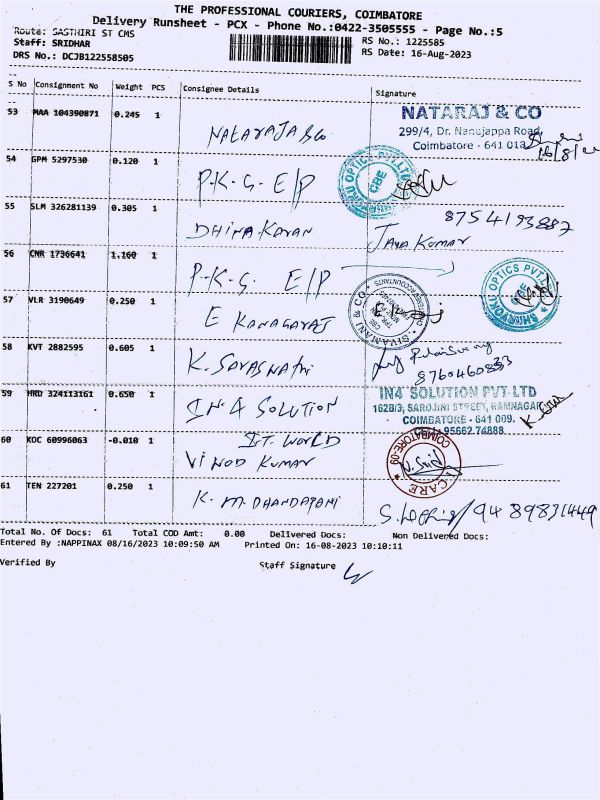 THE PROFESSIONAL COURIERS, COIMBATORE
Delivery Runsheet - PCX - Phone No.:0422-3505555 - Page No.:5
Route: SASTHIRI ST CMS
RS No.: 1225585
Staff: SRIDHAR
RS Date: 16-Aug-2023
DRS No.: DCJB122558505
S No Consignment No Weight PCS Consignee Details Signature
53 MAA 104390871 0.245 1
NATARAJA &Co
NATARAJ & CO
299/4, Dr. Nanjappa Road,
Coimbatore - 641 018
16/8/
54 GPM 5297530 0.120 1
P.K.G. E/P
SHINRYOKU OPTICS PVT.LTD
CBE
55 SLM 326281139 0.305 1
DHINAKARAN
8754193887
JAYA KUMAR
56 CNR 1736641 1.160 1
P.K.G. E/P
SHINRYOKU OPTICS PVT.LTD
CBE
57 VLR 3190649 0.250 1
E KANAGARAJ
SIVAMANI & CO
ACCOUNTANTS
58 KVT 2882595 0.605 1
K. SARASWATHI
8760460833
59 HRD 324113161 0.650 1
IN 4 SOLUTION
IN4 SOLUTION PVT LTD
162B/3, SAROJINI STREET, RAMNAGAR
COIMBATORE - 641 009.
95662 74888
60 KOC 60996063 -0.010 1
I.T. WORLD
VINOD KUMAR
COIMBATORE-09
I CARE
61 TEN 227201 0.250 1
K. M. DHANDAPANI
9489831449
Total No. Of Docs: 61 Total COD Amt: 0.00 Delivered Docs: Non Delivered Docs:
Entered By :NAPPINAX 08/16/2023 10:09:50 AM Printed On: 16-08-2023 10:10:11
Verified By
Staff Signature